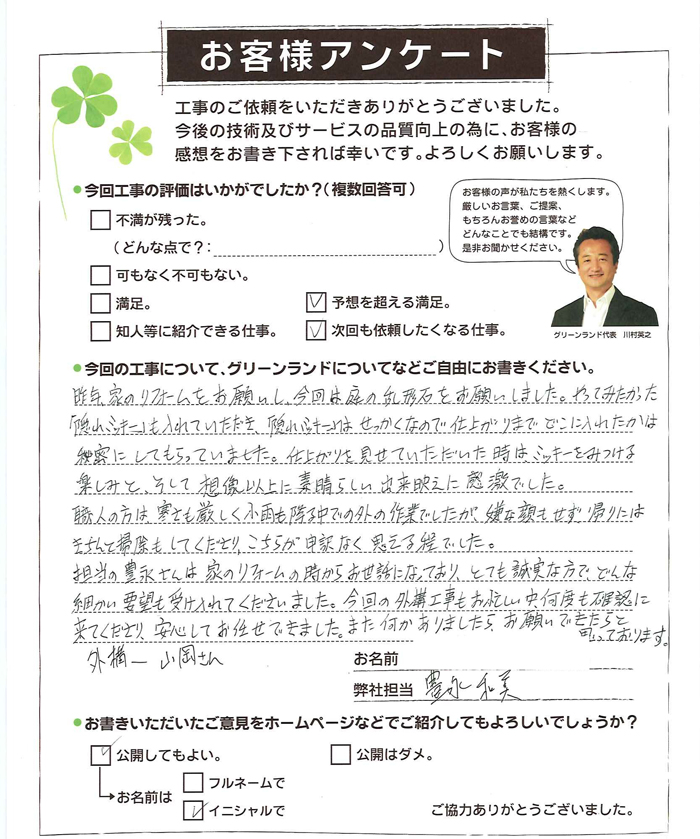 お客様アンケート
工事のご依頼をいただきありがとうございました。
今後の技術及びサービスの品質向上の為に、お客様の
感想をお書き下されば幸いです。よろしくお願いします。
●今回工事の評価はいかがでしたか？（複数回答可）
不満が残った。
（どんな点で？：　　　）
可もなく不可もない。
満足。
✓ 予想を超える満足。
知人等に紹介できる仕事。
✓ 次回も依頼したくなる仕事。
お客様の声が私たちを熱くします。
厳しいお言葉、ご提案、
もちろんお誉めの言葉など
どんなことでも結構です。
是非お聞かせください。
グリーンランド代表　川村英之
●今回の工事について、グリーンランドについてなどご自由にお書きください。
昨年、家のリフォームをお願いし、今回は庭の乱形石をお願いしました。やってみたかった
「隠れミッキー」も入れていただき、「隠れミッキー」はせっかくなので仕上がりまでどこに入れたかは
秘密にしてもらっていました。仕上がりを見せていただいた時は、ミッキーをみつける
楽しみと、そして想像以上に素晴らしい出来映えに感激でした。
職人の方は、寒さも厳しく小雨も降る中での外の作業でしたが、嫌な顔もせず帰りには
きちんと掃除もしてくださり、こちらが申訳なく思える程でした。
担当の豊永さんは家のリフォームの時からお世話になっており、とても誠実な方で、どんな
細かい要望も受け入れてくださいました。今回の外構工事もお忙しい中、何度も確認に
来てくださり、安心してお任せできました。また何かありましたら、お願いできたらと
思っております。
外構ー 山岡さん
お名前
弊社担当 豊永 和美
●お書きいただいたご意見をホームページなどでご紹介してもよろしいでしょうか？
✓ 公開してもよい。
公開はダメ。
お名前は
フルネームで
✓ イニシャルで
ご協力ありがとうございました。